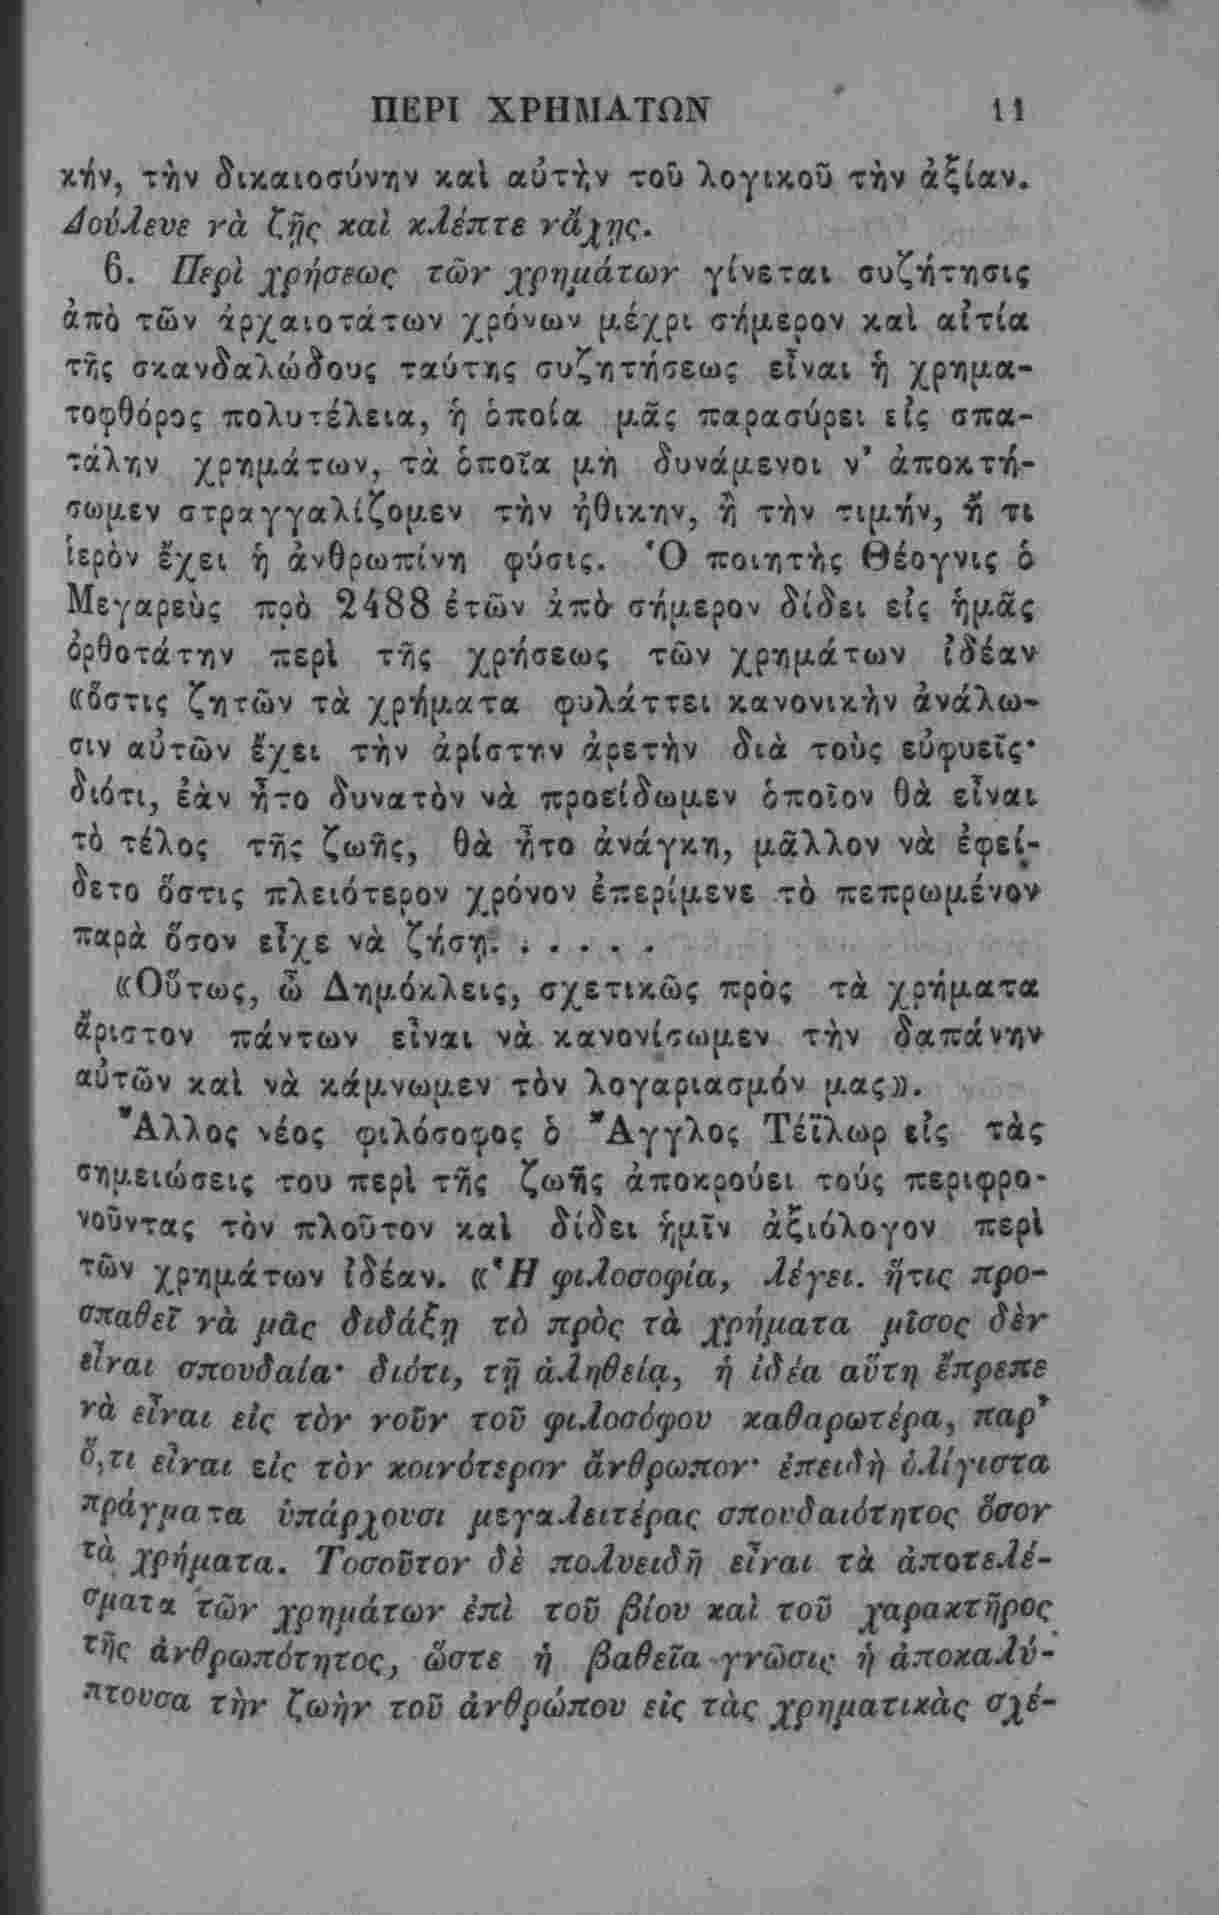 ΠΕΡΙ ΧΡΗΜΑΤΩΝ 11
κήν, τὴν δικαιοσύνην καὶ αὐτὴν τοῦ λογικοῦ τὴν ἀξίαν.
Δούλευε νὰ ζῇς καὶ κλέπτε νἄχῃς.
6. Περὶ χρήσεως τῶν χρημάτων γίνεται συζήτησις
ἀπὸ τῶν ἀρχαιοτάτων χρόνων μέχρι σήμερον καὶ αἰτία
τῆς σκανδαλώδους ταύτης συζητήσεως εἶναι ἡ χρημα-
τοφθόρος πολυτέλεια, ἡ ὁποία μᾶς παρασύρει εἰς σπα-
τάλην χρημάτων, τὰ ὁποῖα μὴ δυνάμενοι ν’ ἀποκτή-
σωμεν στραγγαλίζομεν τὴν ἠθικὴν, ἢ τὴν τιμήν, ἤ τι
ἱερὸν ἔχει ἡ ἀνθρωπίνη φύσις. Ὁ ποιητὴς Θέογνις ὁ
Μεγαρεὺς πρὸ 2488 ἐτῶν ἀπὸ σήμερον δίδει εἰς ἡμᾶς
ὀρθοτάτην περὶ τῆς χρήσεως τῶν χρημάτων ἰδέαν
«ὅστις ζητῶν τὰ χρήματα φυλάττει κανονικὴν ἀνάλω-
σιν αὐτῶν ἔχει τὴν ἀρίστην ἀρετὴν διὰ τοὺς εὐφυεῖς·
διότι, ἐὰν ἦτο δυνατὸν νὰ προείδωμεν ὁποῖον θὰ εἶναι
τὸ τέλος τῆς ζωῆς, θὰ ἦτο ἀνάγκη, μᾶλλον νὰ ἐφεί-
δετο ὅστις πλειότερον χρόνον ἐπερίμενε τὸ πεπρωμένον
παρὰ ὅσον εἶχε νὰ ζήσῃ. . . . . .
«Οὕτως, ὦ Δημόκλεις, σχετικῶς πρὸς τὰ χρήματα
ἄριστον πάντων εἶναι νὰ κανονίσωμεν τὴν δαπάνην
αὐτῶν καὶ νὰ κάμνωμεν τὸν λογαριασμόν μας».
Ἄλλος νέος φιλόσοφος ὁ Ἄγγλος Τέϊλωρ εἰς τὰς
σημειώσεις του περὶ τῆς ζωῆς ἀποκρούει τούς περιφρο-
νοῦντας τὸν πλοῦτον καὶ δίδει ἡμῖν ἀξιόλογον περὶ
τῶν χρημάτων ἰδέαν. «Ἡ φιλοσοφία, λέγει. ἥτις προ-
σπαθεῖ νὰ μᾶς διδάξῃ τὸ πρὸς τὰ χρήματα μῖσος δὲν
εἶναι σπουδαία· διότι, τῇ ἀληθείᾳ, ἡ ἰδέα αὕτη ἔπρεπε
νὰ εἶναι εἰς τὸν νοῦν τοῦ φιλοσόφου καθαρωτέρα, παρ’
ὅ,τι εἶναι εἰς τὸν κοινότερον ἄνθρωπον· ἐπειδὴ ὀλίγιστα
πράγματα ὑπάρχουσι μεγαλειτέρας σπουδαιότητος ὅσον
τὰ χρήματα. Τοσοῦτον δὲ πολυειδῆ εἶναι τὰ ἀποτελέ-
σματα τῶν χρημάτων ἐπὶ τοῦ βίου καὶ τοῦ χαρακτῆρος
τῆς ἀνθρωπότητος, ὥστε ἡ βαθεῖα γνῶσις ἡ ἀποκαλύ-
πτουσα τὴν ζωὴν τοῦ ἀνθρώπου εἰς τὰς χρηματικὰς σχέ-